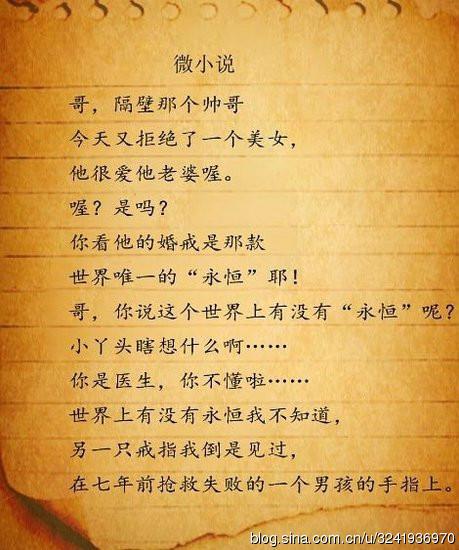 微小说
哥，隔壁那个帅哥
今天又拒绝了一个美女，
他很爱他老婆喔。
喔？是吗？
你看他的婚戒是那款
世界唯一的“永恒”耶！
哥，你说这个世界上有没有“永恒”呢？
小丫头瞎想什么啊……
你是医生，你不懂啦……
世界上有没有永恒我不知道，
另一只戒指我倒是见过，
在七年前抢救失败的一个男孩的手指上。
blog.sina.com.cn/u/3241936970